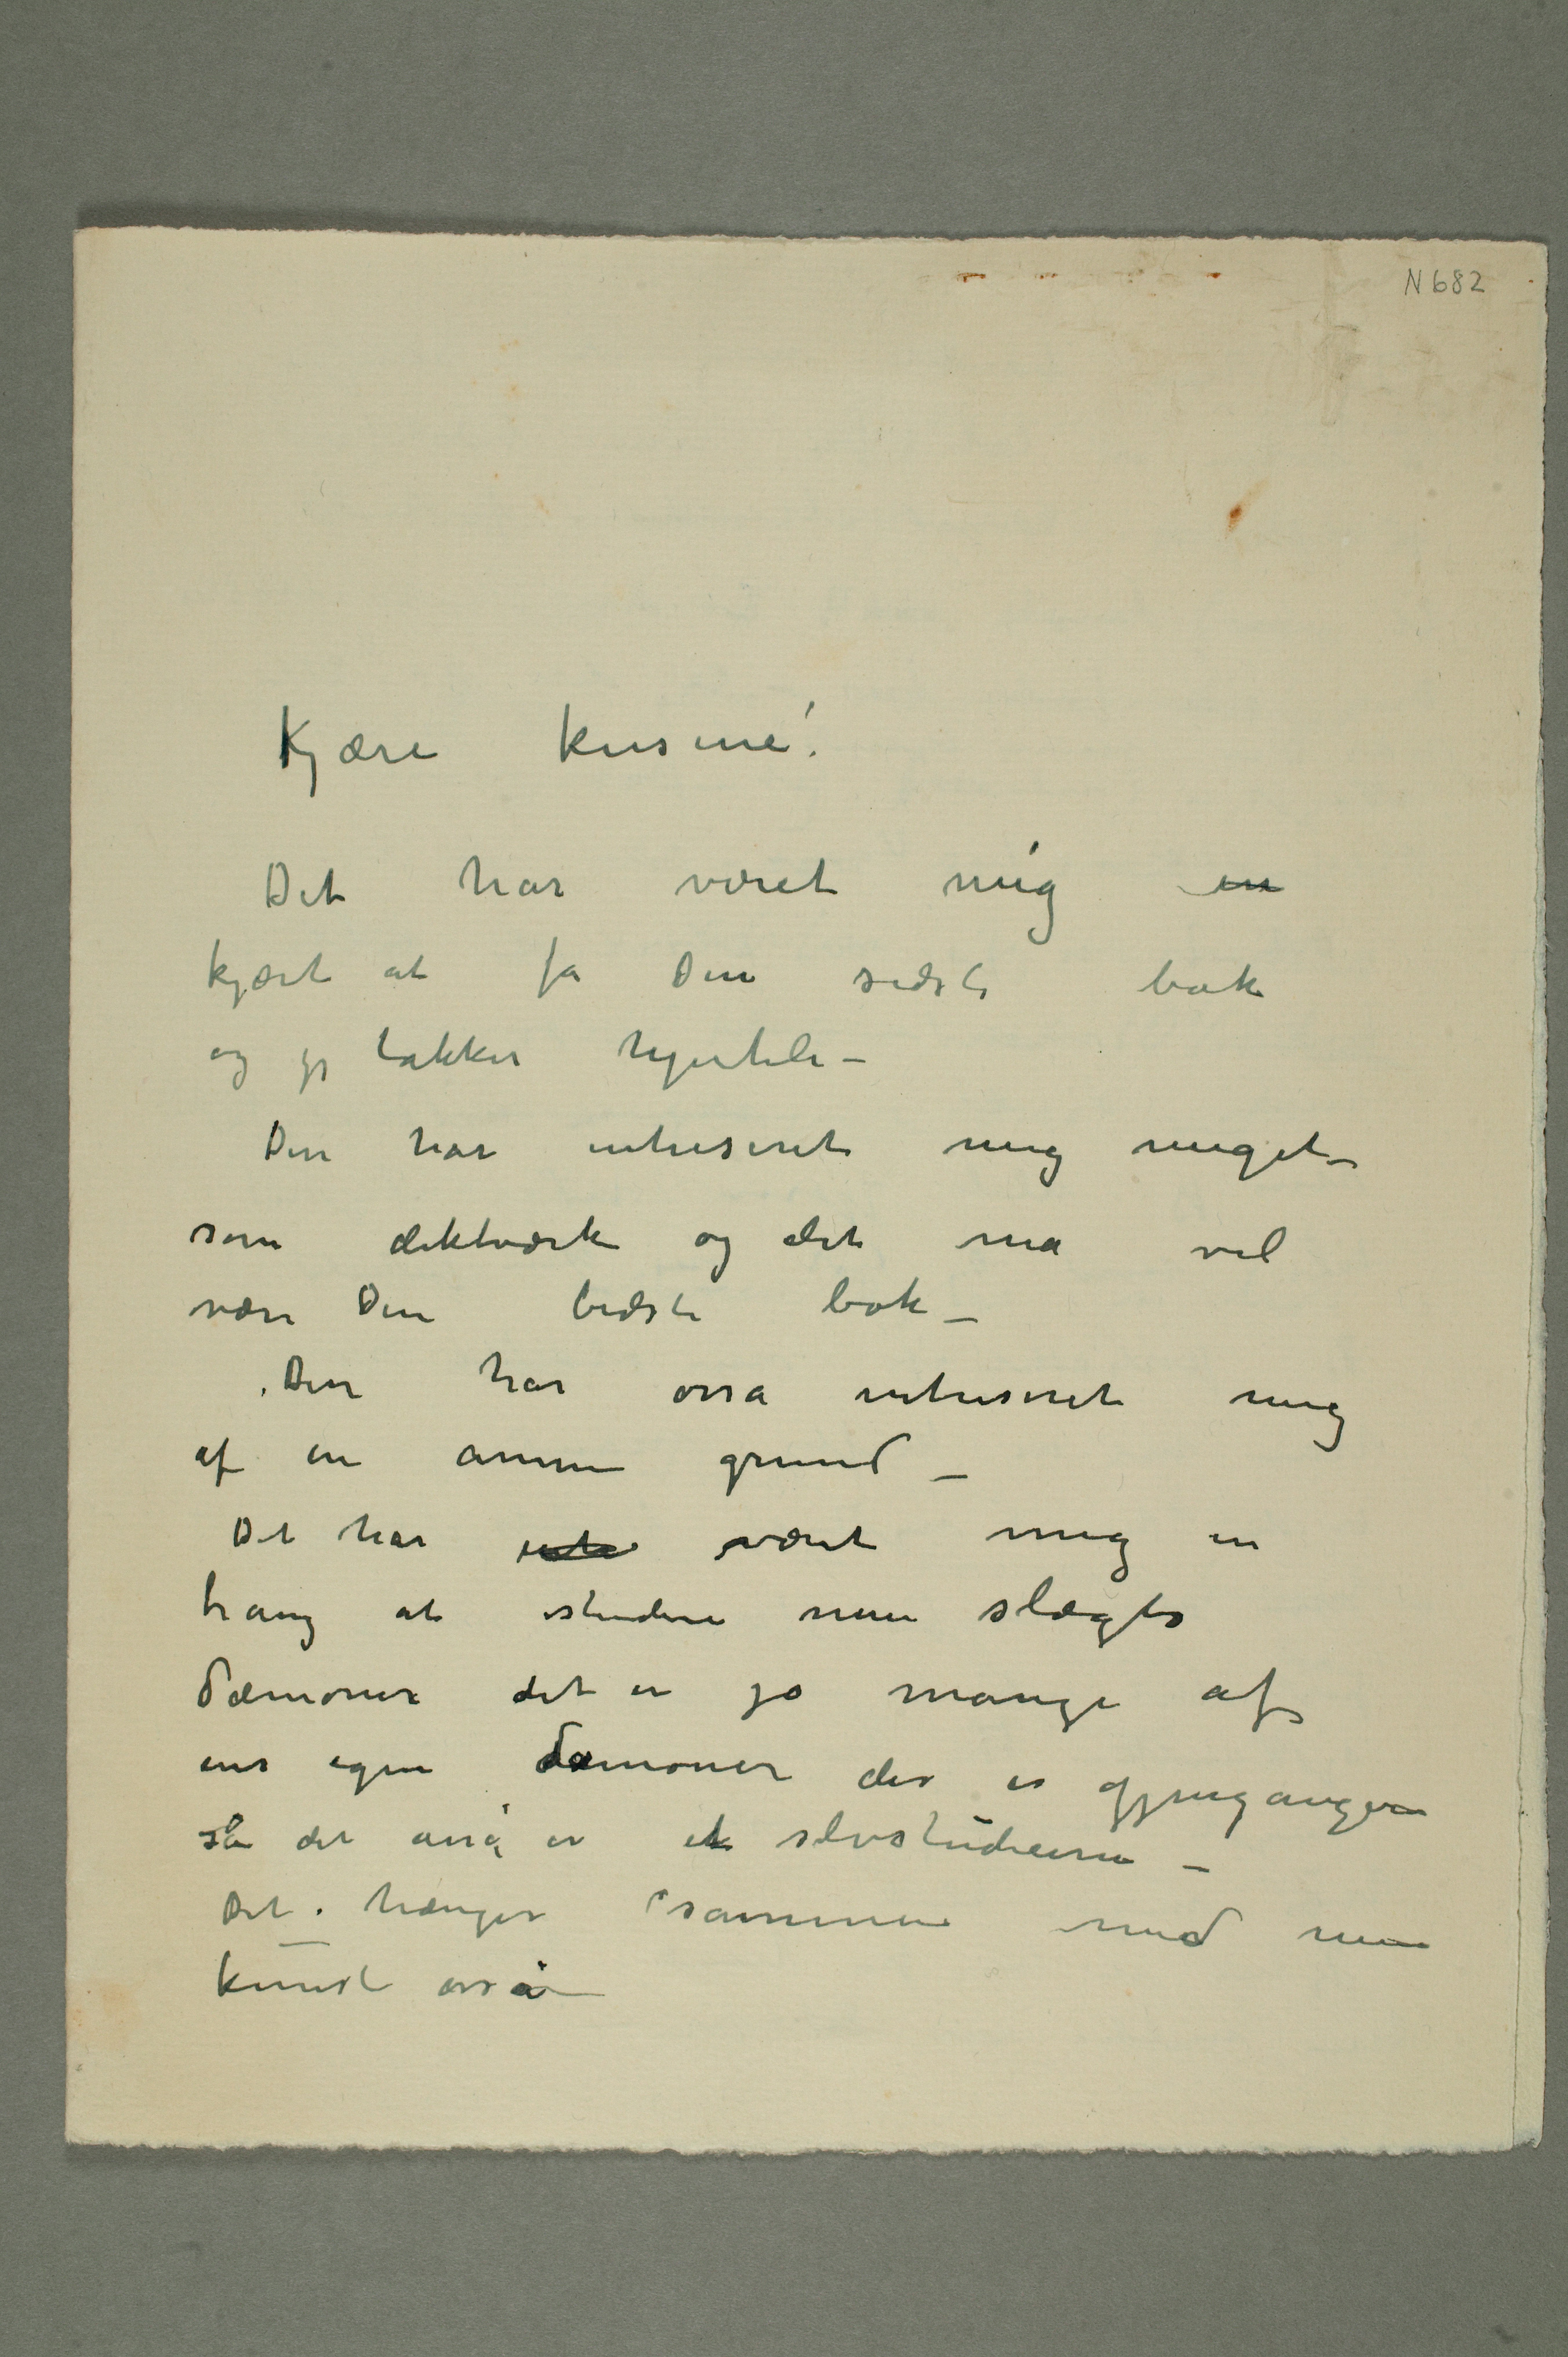 N 682
Kjære kusine!
Det har været mig en
kjært at få Din sidste bok
og jeg takker hjerteli –
Den har intreseret mig meget –
som diktværk og det må vel
være Din bedste bok –
Den har osså intreseret mig
af en annen grund –
Det har været mig en
trang at studere min slægts
dæmoner det er jo mange af
ens egne dæmoner der er gjengangere
så det osså er et selvstudium –
Det hænger sammen med min
kunst osså –